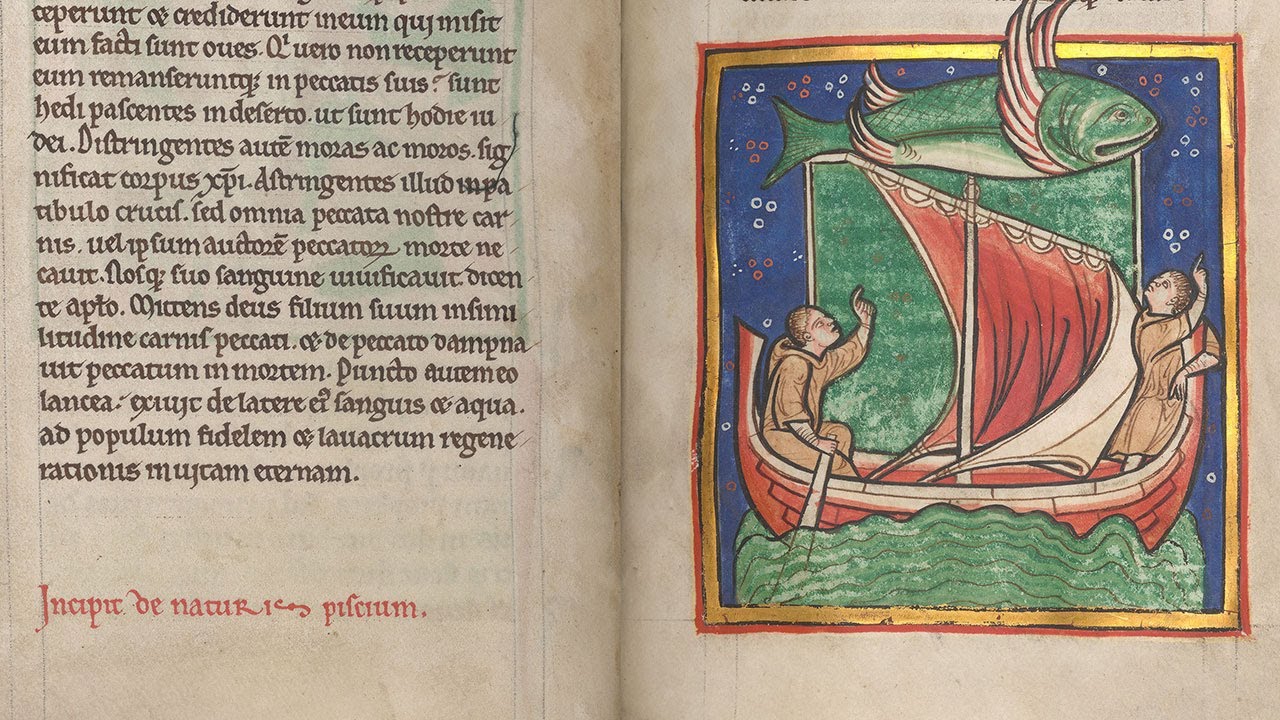 ceperunt ⁊ crediderunt in eum qui misit
eum facti sunt oues. Qi uero non receperunt
eum remanseruntq; in peccatis suis: sunt
hedi pascentes in deserto. ut sunt hodie iu
dei. Distringentes autē moras ac moros. sig
nificat corpus xp̄i. Astringentes illud in pa
tibulo crucis. sed omnia peccata nostre car
nis. uel ipsum auctorē peccatoꝝ morte ne
cauit. Nosq; suo sanguine uiuificauit. dicen
te apło. Mittens deus filium suum in simi
litudine carnis peccati. ⁊ de peccato dampna
uit peccatum in mortem. Puncto autem eo
lancea: exiuit de latere ei᾽ sanguis ⁊ aqua.
ad populum fidelem ⁊ lauacrum regene
rationis in uitam eternam.
Incipit de naturis piscium.